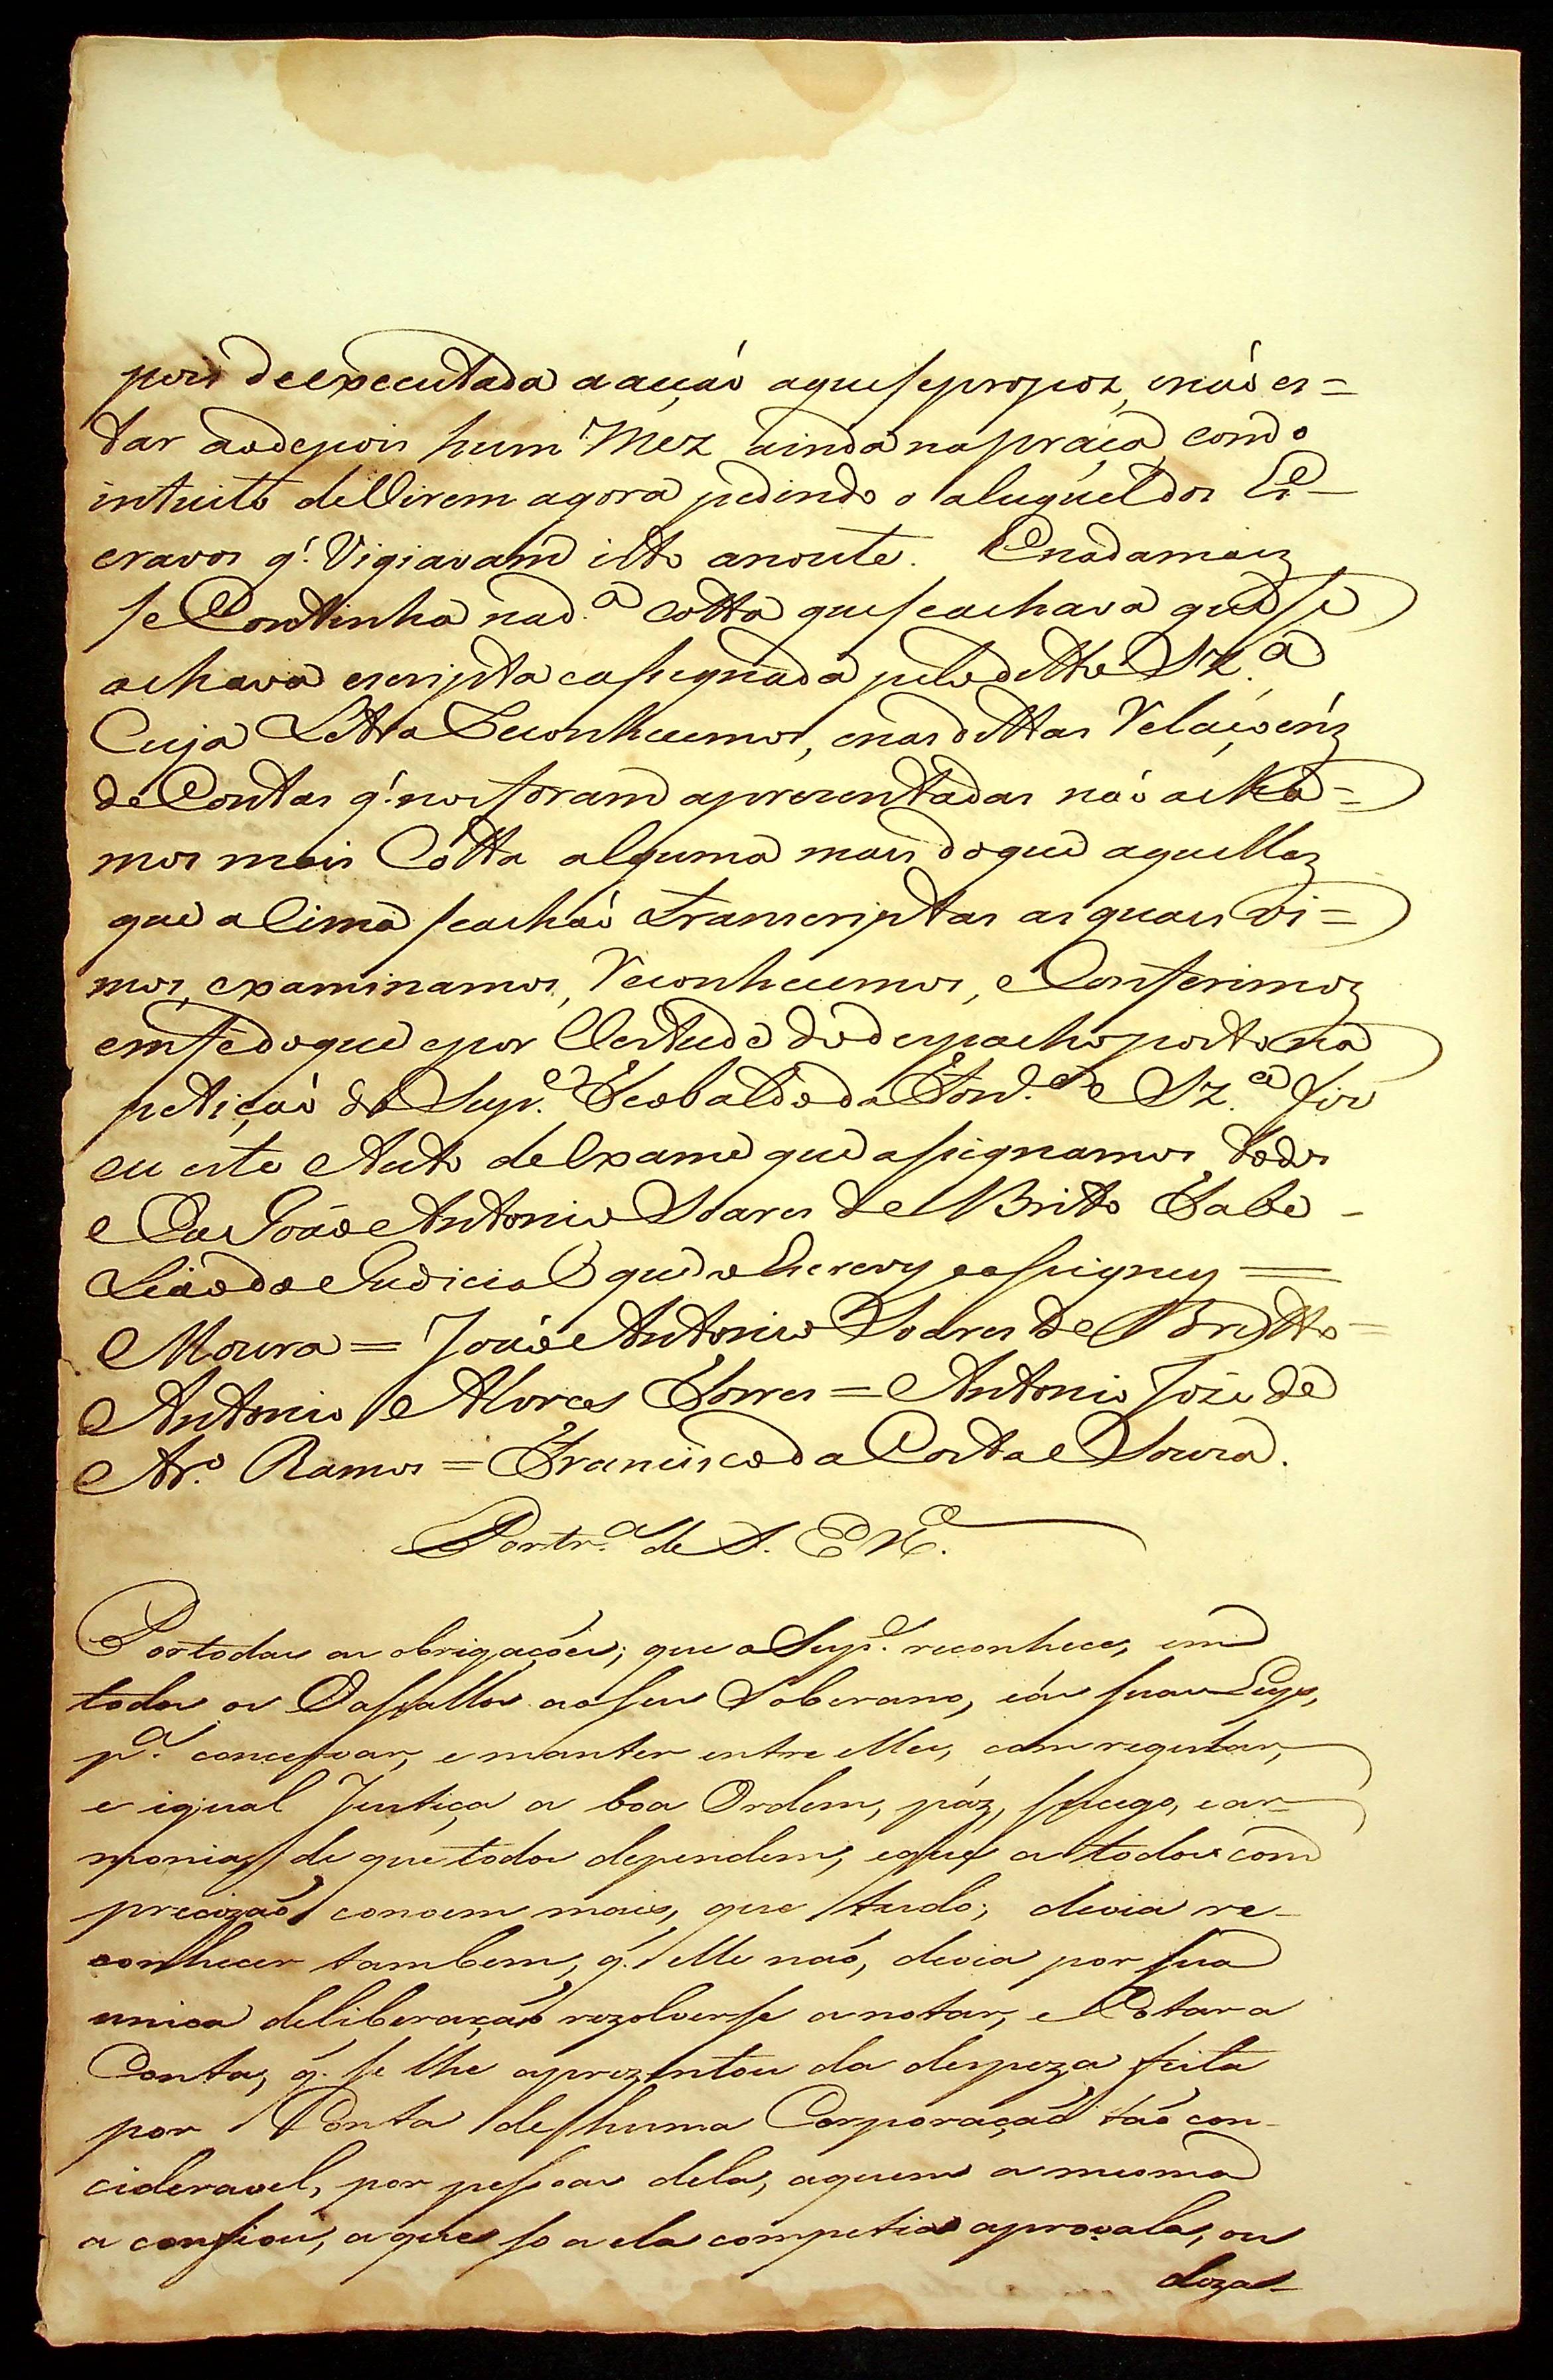 pois de executada a acçaõ aque sepropoz, enaõ es=
tar aodepois hum Mez ainda napráça, com o
intuito deVirem agora pedindo o aluguel dos Es-
cravos q.' Vigiavam isto anoute. Enadamaiz
seContinha nad.ª cotta que seachava que se
achava escripta easignada pelo ditto Sz.ª
Cuja Lettra Reconhecemos, enas dittas Relaçoens
de Contas q.' nos foram aprezentadas naõ acha=
mos mais Cotta alguma mais doque aquellas
que aSima seachaõ transcriptas as quais vi=
mos, examinamos, Reconhecemos, eConferimos
emfé doque epor Vertude do despacho posto na
petiçaõ do Sup.e Teobaldo da Fon.ca e Sz.ª fis
eu este Auto deExame que asignamos todos
e Eu Joaõ Antonio Soares de Britto Tabe-
liaõ do Judicial que o Escrevy easigney =
Moura = Joaõ Antonio Soares de Britto =
Antonio Alvares Torres = Antonio Joze de
Ar.º Ramos = Francisco da Costa e Souza.
Portr.ª de S. Ex.ª
Portodas as obrigaçoés, que o Sup.e reconhece, em
todos os Vassallos aoseu Soberano, eás suas Leys,
p.ª concervar, e manter entre elles, com regular,
e igual Justiça a boa Ordem, páz, socego, e ar-
monia, de que todos dependem, eque a todos com
precizaõ convem mais, que tudo; devia re-
conhecer tambem, q.' elle naõ, devia por sua
unica deliberaçaõ rezolverse a notar, e Cotar a
Conta, q.' se lhe aprezentou da despeza feita
por Conta de huma Corporaçaõ taõ con-
cideravel, por pessoas dela, aquem a mesma
a confiou, a que so a ela competia aprovala, ou
deza-